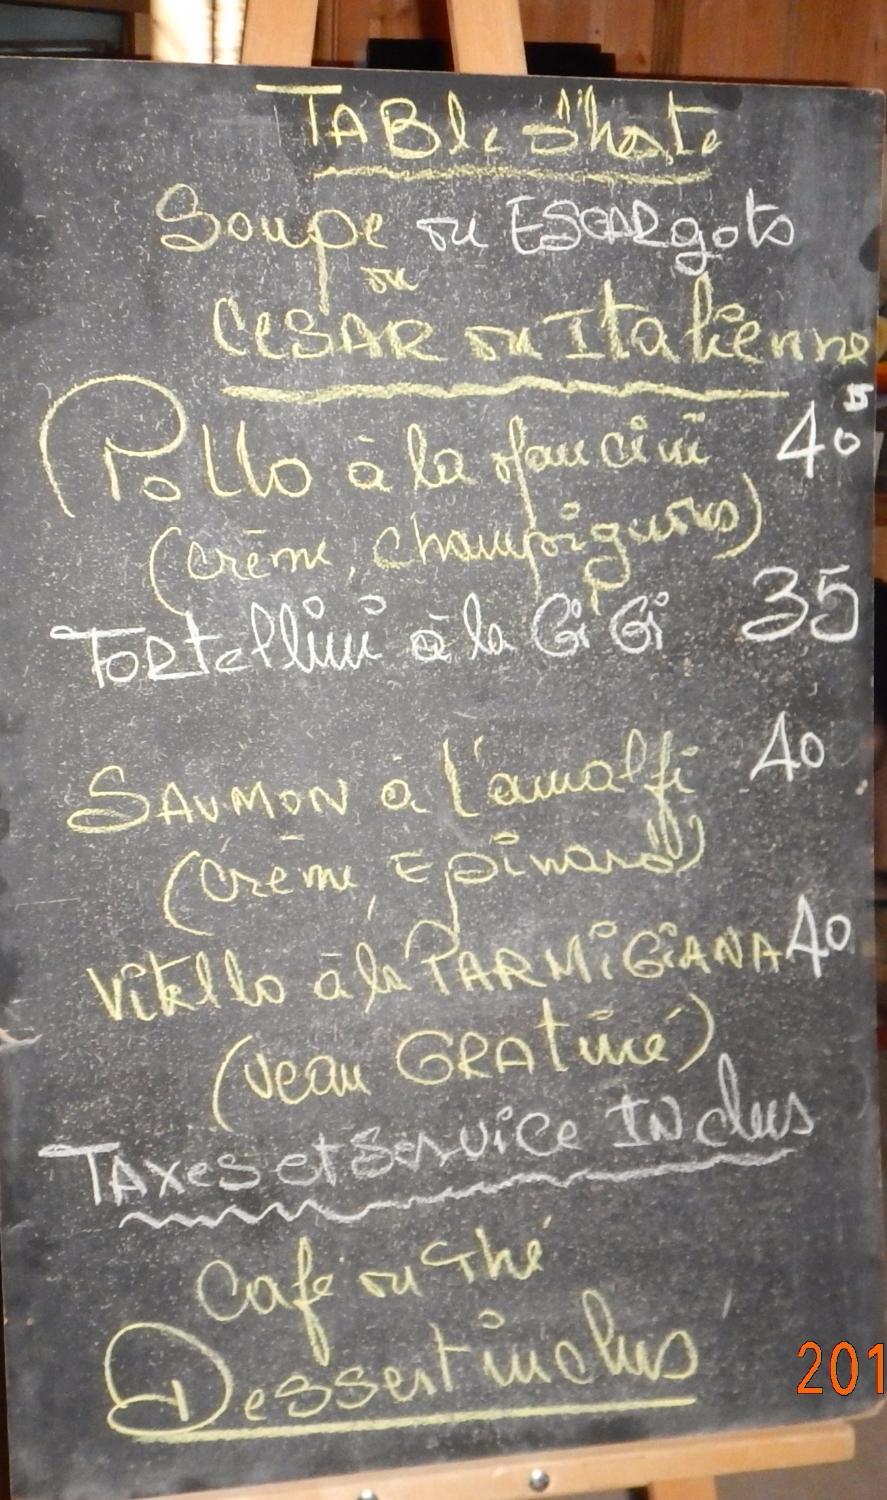 TABle d'hoste
Soupe ou ESCARgots
ou
CESAR ou Italienne
Pollo à la fancini 40 $
(crème, champignons)
TORTellini à la GiGi 35
SAUMON à l'amalfi 40
(crème, Epinard)
Vitello à la PARMiGiANA 40
(veau GRAtiné)
TAXes et Service INclus
Café ou Thé
Dessert inclus
201